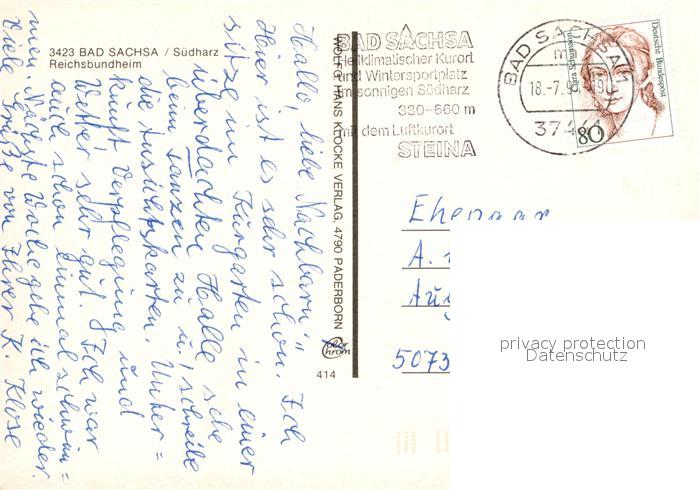 3423 BAD SACHSA / Südharz
Reichsbundheim
Hallo, liebe Nachbarn"
Hier ist es sehr schön. Ich
sitze im Kurgarten in einer
überdachten Halle sehe
beim Tanzen zu u. schreibe
die Ansichtskarten. Unter=
kunft, Verpflegung und
Wetter sehr gut. Ich war
auch schon einmal schwim=
men. Nächste Woche gehe ich wieder.
Viele Grüße von Ihrer K. Klose
WOLFG. HANS KLOCKE VERLAG, 4790 PADERBORN
Color
Chrom
414
BAD SACHSA
Heilklimatischer Kurort
und Wintersportplatz
im sonnigen Südharz
330-660 m
mit dem Luftkurort
STEINA
BAD SACHSA
18.-7.9
3744
Deutsche Bundespost
80
Ehepaar
A.
5073
privacy protection
Datenschutz